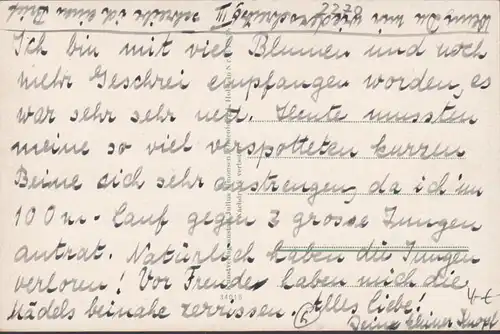 Wenn Du mir wiederschreibst, schreibe ich einen Brief
2270
Ich bin mit viel Blumen und noch
mehr Geschrei empfangen worden, es
war sehr sehr nett. Heute mussten
meine so viel verspotteten kurzen
Beine sich sehr anstrengen, da ich im
100 m. Lauf gegen 3 grosse Jungen
antrat. Natürlich haben die Jungen
verloren! Vor Freude haben mich die
Mädels beinahe zerrissen. Alles liebe!
Deine kleiner
14015
4-€